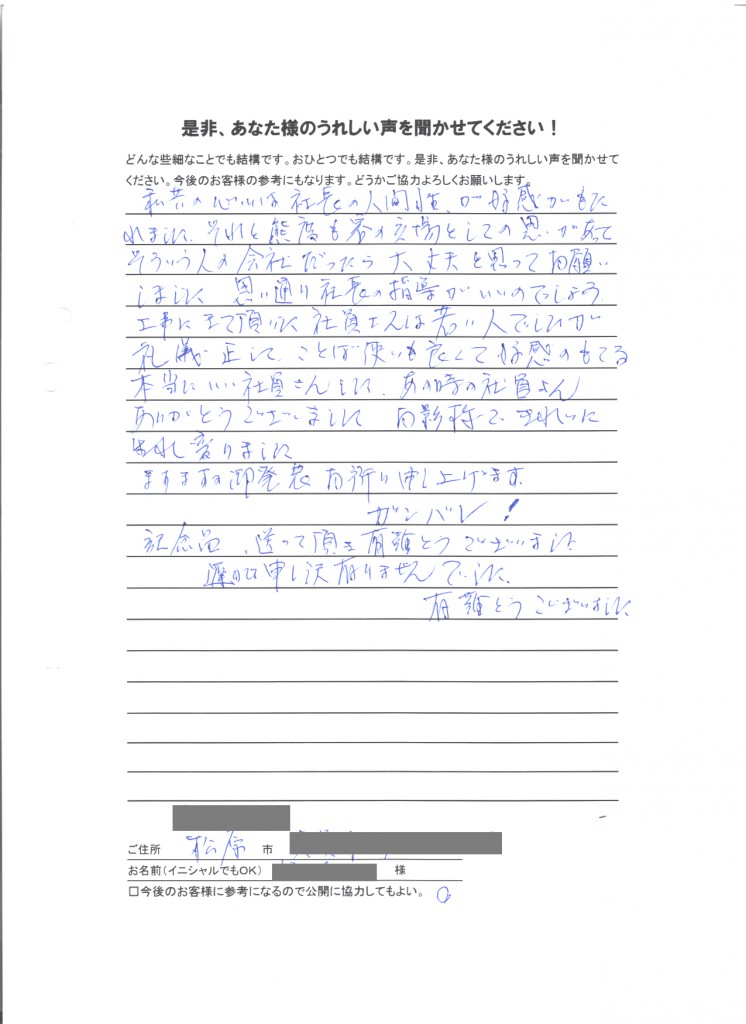 是非、あなた様のうれしい声を聞かせてください！
どんな些細なことでも結構です。おひとつでも結構です。是非、あなた様のうれしい声を聞かせて
ください。今後のお客様の参考にもなります。どうかご協力よろしくお願いします。
私共の心は社長の人間性が好感がもた
れました、それと態度も客の立場としての思いがあって
そういう人の会社だったら大丈夫と思ってお願い
しました 思い通り社長の指導がいいのでしょう
工事に来て頂いた社員さんは若い人でしたが
礼儀正しく、ことば使いも良くて好感のもてる
本当にいい社員さんでした、あの時の社員さん
ありがとうございました お影様で きれいに
生れ変りました
ますますの御発展お祈り申し上げます
ガンバレ！
記念品、送って頂き有難とうございました
遅れて申し訳有りませんでした、
有難とうございました
ご住所 松原 市
お名前（イニシャルでもOK） 様
□今後のお客様に参考になるので公開に協力してもよい。 ○